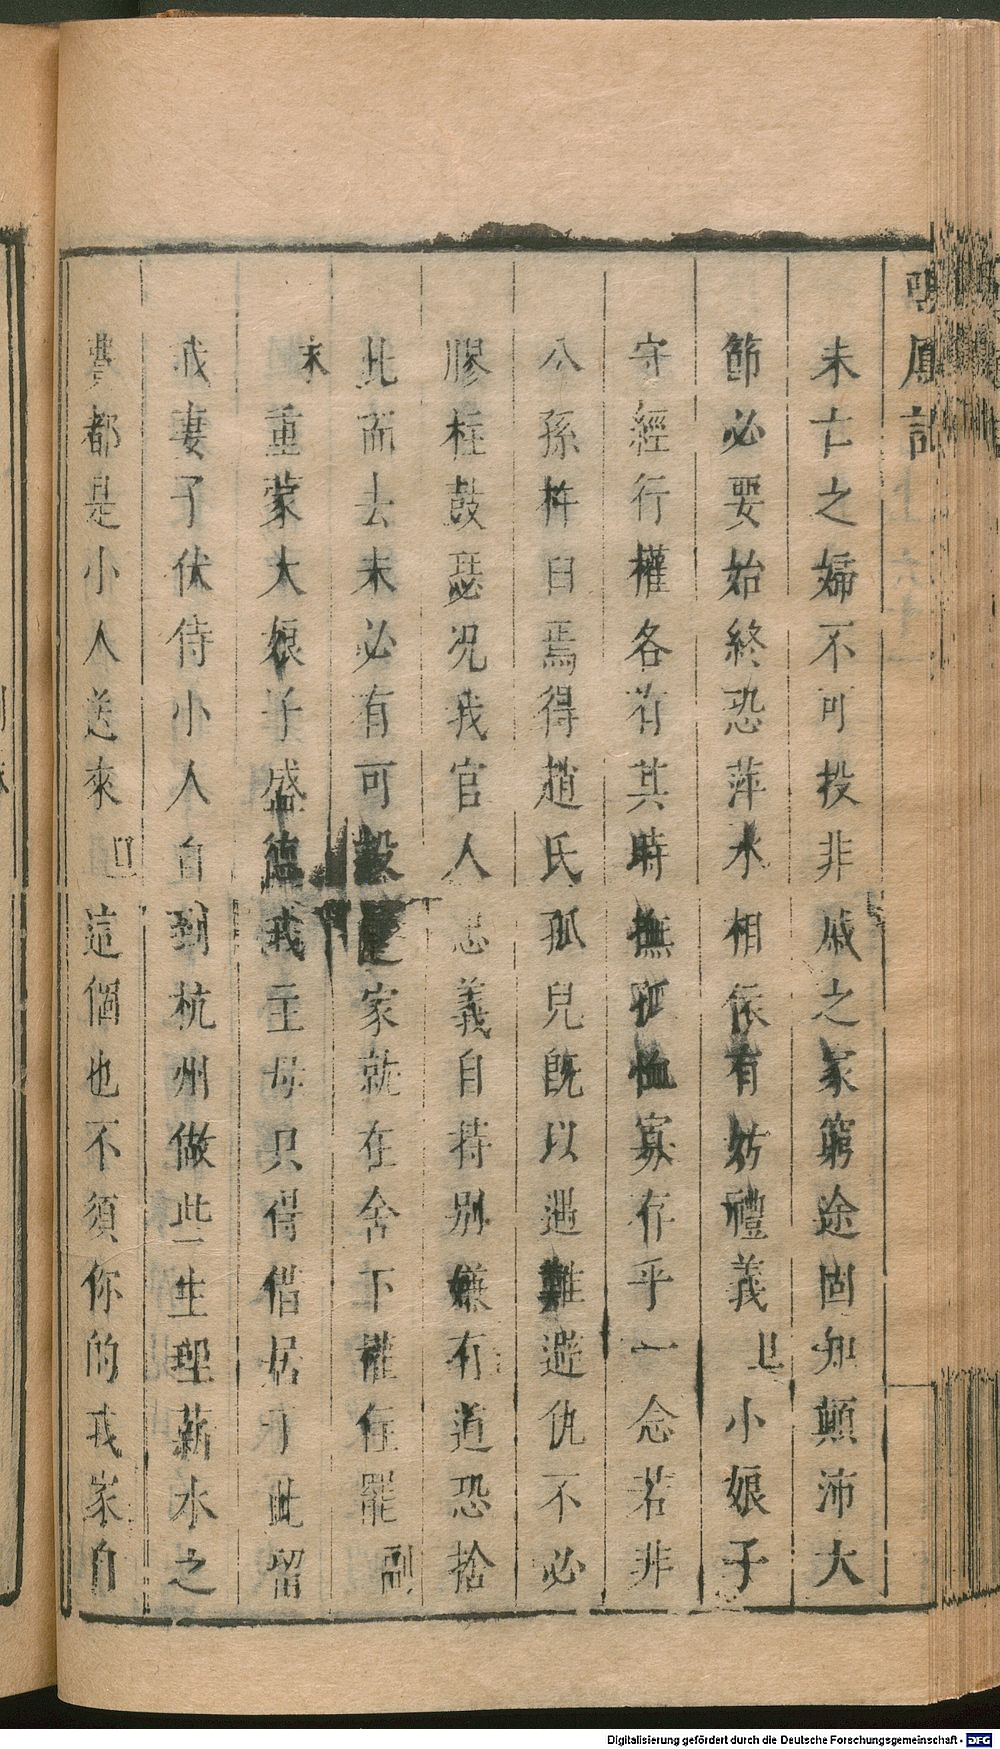 鳳記
未亡之婦不可投非戚之家窮途固知顛沛大
節必要始終恐萍水相依有妨禮義 旦 小娘子
守經行權各有其時撫孤恤寡存乎一念若非
公孫杵臼焉得趙氏孤兒旣以遇難避仇不必
膠柱鼓瑟况我官人忠義自持別嫌有道恐捨
此而去未必有可投家就在舍下權住罷 副
末 重蒙大娘子盛德我主母只得借居于此留
我妻子伏侍小人自到杭州做些生理薪水之
費都是小人送來 旦 這個也不須你的我家自
Digitalisierung gefördert durch die Deutsche Forschungsgemeinschaft - DFG